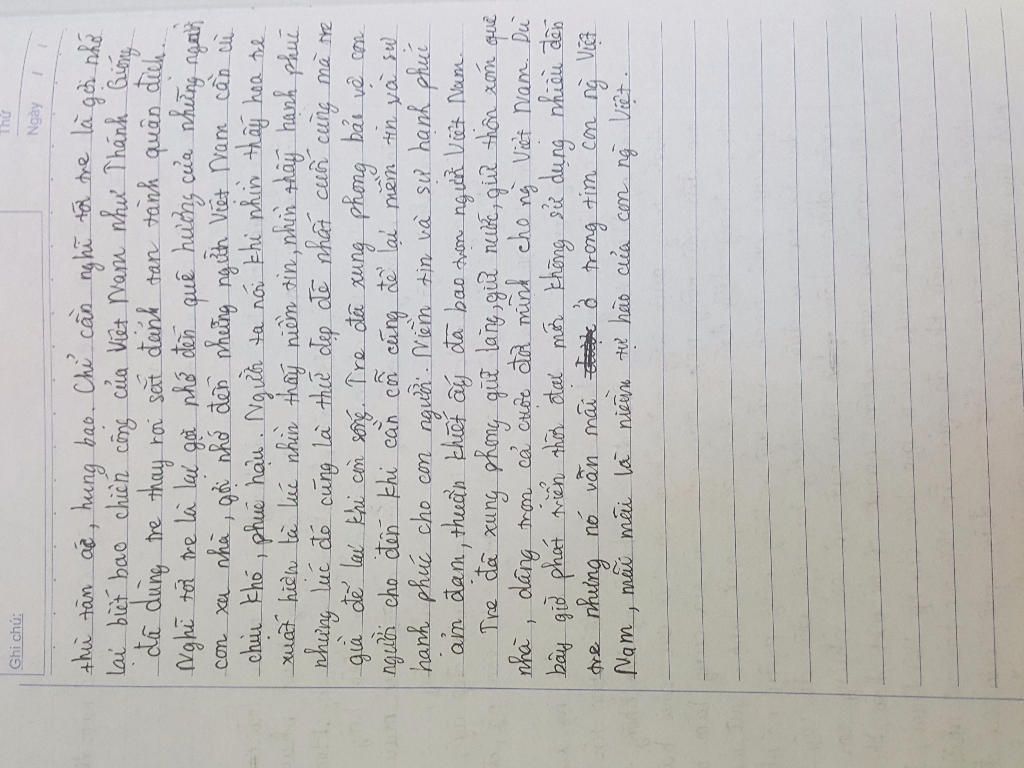 Thứ
Ngày / /
Ghi chú:
thù tàn ác, hung bạo. Chỉ cần nghĩ tới tre là gợi nhớ
lại biết bao chiến công của Việt Nam như Thánh Gióng
đã dùng tre thay roi sắt đánh tan tành quân địch.
Nghĩ tới tre là lại gợi nhớ đến quê hương của những người
con xa nhà, gợi nhớ đến những người Việt Nam cần cù
chịu khó, phúc hậu. Người ta nói khi nhìn thấy hoa tre
xuất hiện là lúc nhìn thấy niềm tin, nhìn thấy hạnh phúc
nhưng lúc đó cũng là thứ đẹp đẽ nhất cuối cùng mà tre
già để lại khi còn sống. Tre đã xung phong bảo vệ con
người cho đến khi cằn cỗi cũng để lại niềm tin và sự
hạnh phúc cho con người. Niềm tin và sự hạnh phúc
ảm đạm, thuần khiết ấy đã bao trọn người Việt Nam.
Tre đã xung phong giữ làng, giữ nước, giữ thôn xóm quê
nhà, dâng trọn cả cuộc đời mình cho ng Việt Nam. Dù
bây giờ phát triển thời đại mới không sử dụng nhiều đến
tre nhưng nó vẫn mãi ở trong tim con ng Việt
Nam, mãi mãi là niềm tự hào của con ng Việt.